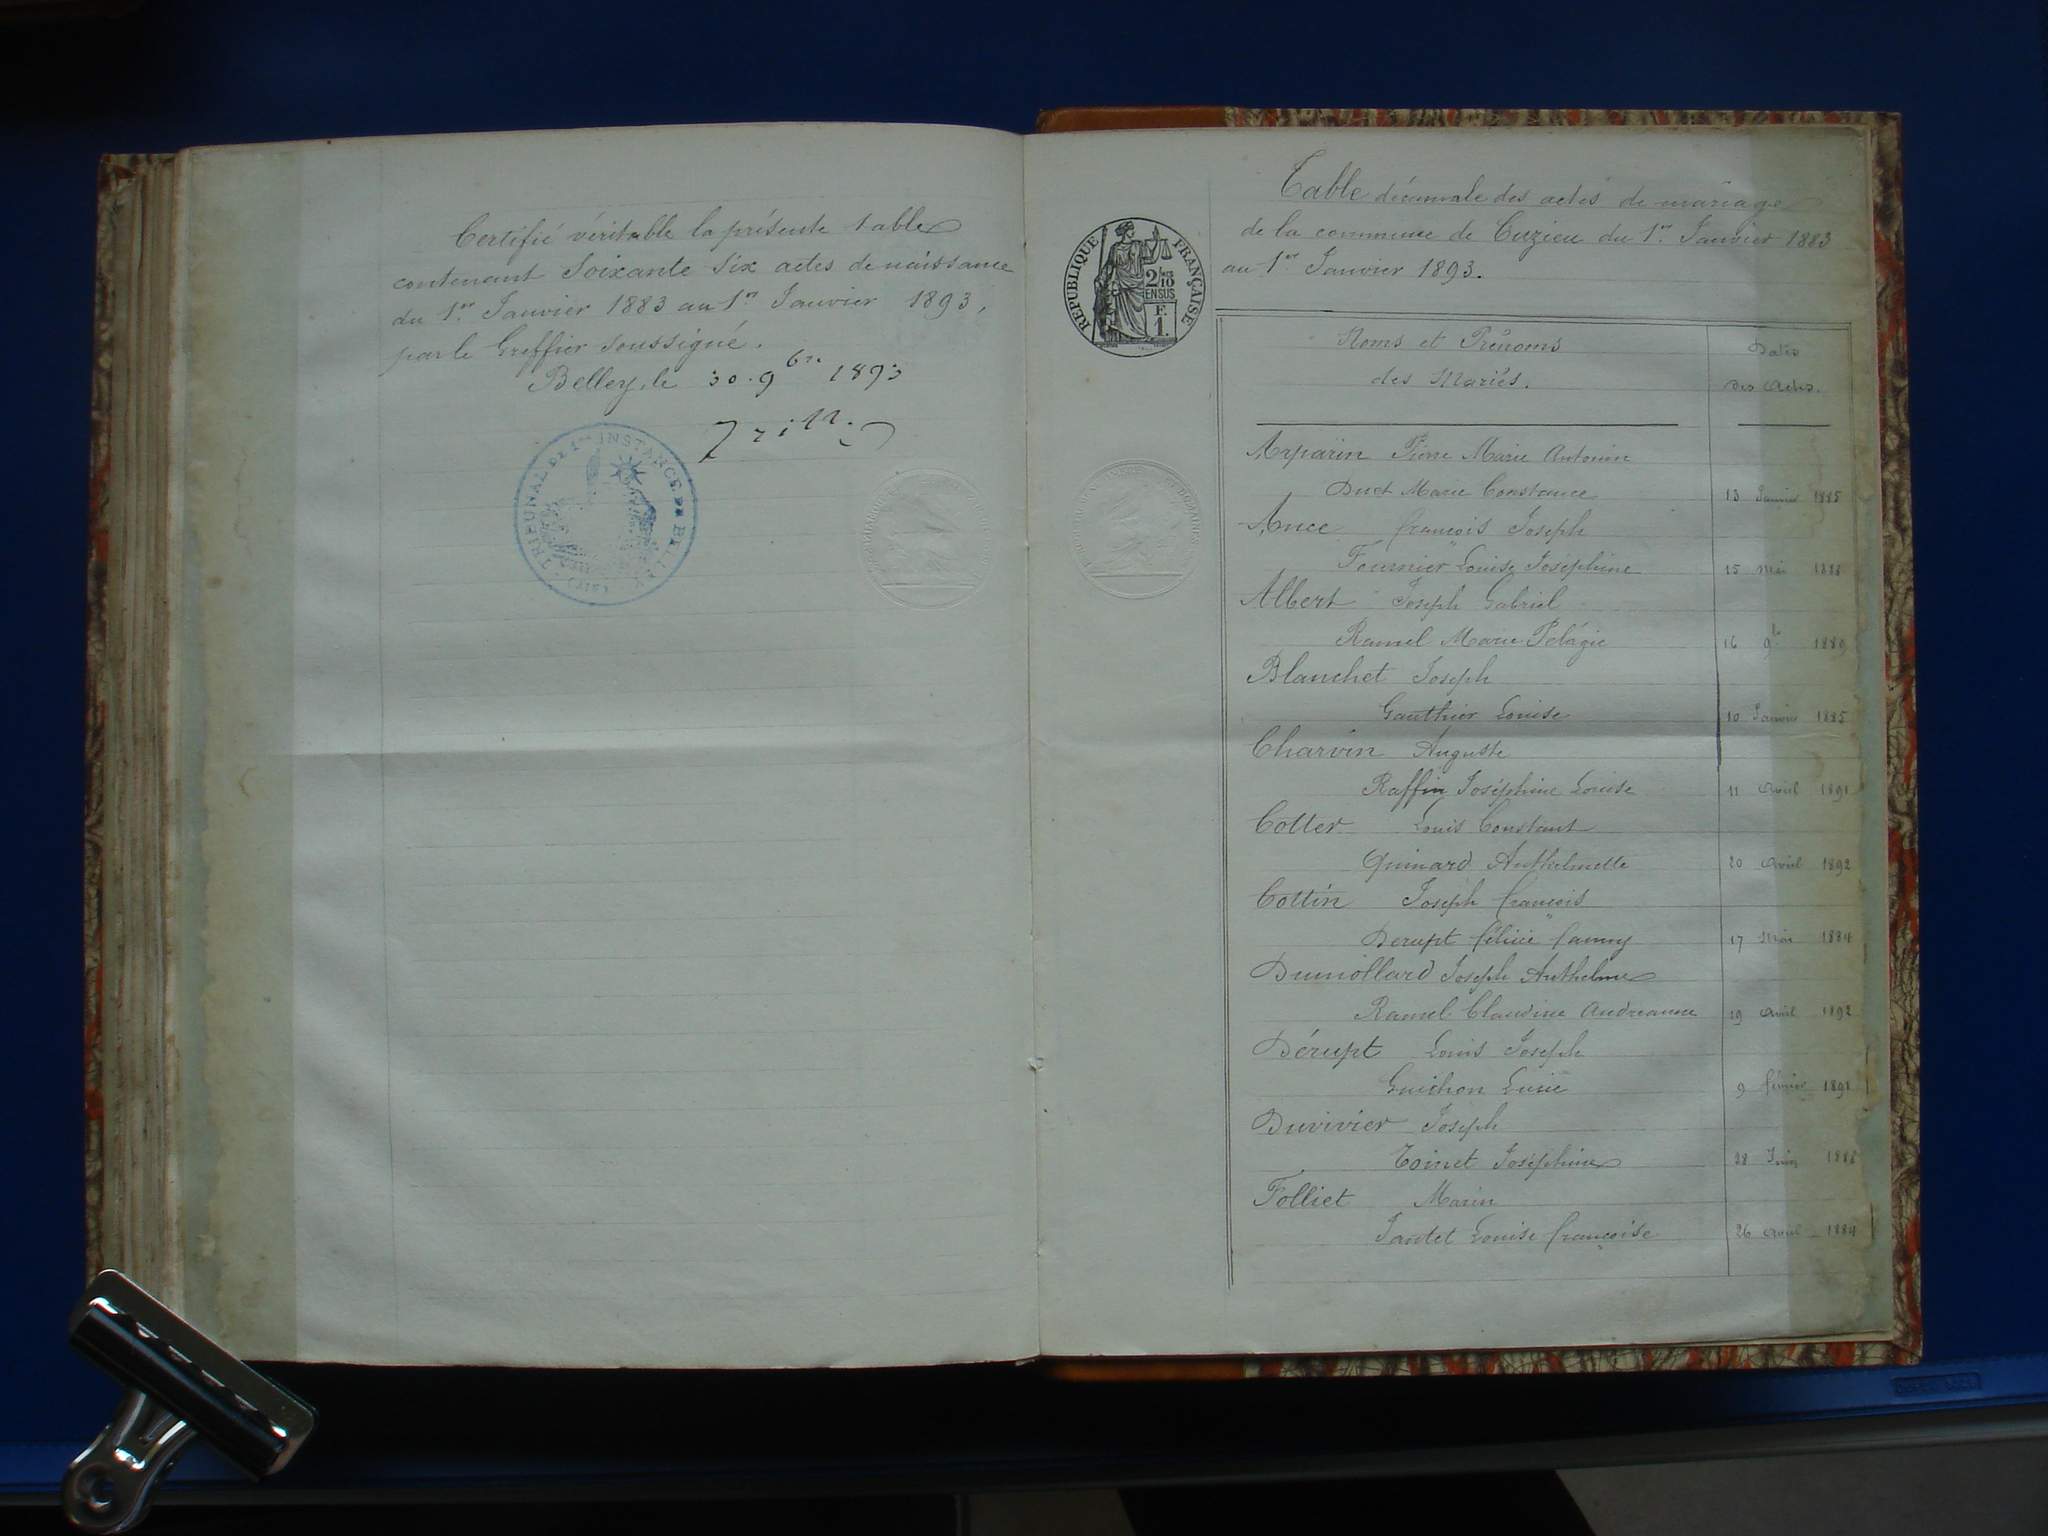 Certifié véritable la présente table
contenant soixante six actes de naissance
du 1er Janvier 1883 au 1er Janvier 1893,
par le Greffier soussigné.
Belley, le 30 9bre 1893
TRIBUNAL DE 1ère INSTANCE DE BELLEY
(AIN)
RÉPUBLIQUE FRANÇAISE
2/10
EN SUS
F.
1.
Table décennale des actes de mariage
de la commune de Cuzieu du 1er Janvier 1883
au 1er Janvier 1893.
Noms et Prénoms
des Mariés.
Dates
des Actes.
Arparin Pierre Marie Antonin
Duct Marie Constance 13 Janvier 1885
Ance françois Joseph
Fournier Louise Joséphine 15 Mai 1888
Albert Joseph Gabriel
Ramel Marie Pélagie 16 9bre 1889
Blanchet Joseph
Gauthier Louise 10 Janvier 1885
Charvin Auguste
Raffin Joséphine Louise 11 Avril 1891
Cotter Louis Constant
Quinard Anthelmette 20 Avril 1892
Cottin Joseph françois
Derupt félicie fanny 17 Mai 1884
Dumollard Joseph Anthelme
Ramel Claudine Andréanne 19 Avril 1892
Dérupt Louis Joseph
Guichon Lucie 9 février 1891
Duvivier Joseph
Toinet Joséphine 28 Juin 1888
Folliet Marin
Jantet Louise françoise 26 Avril 1884